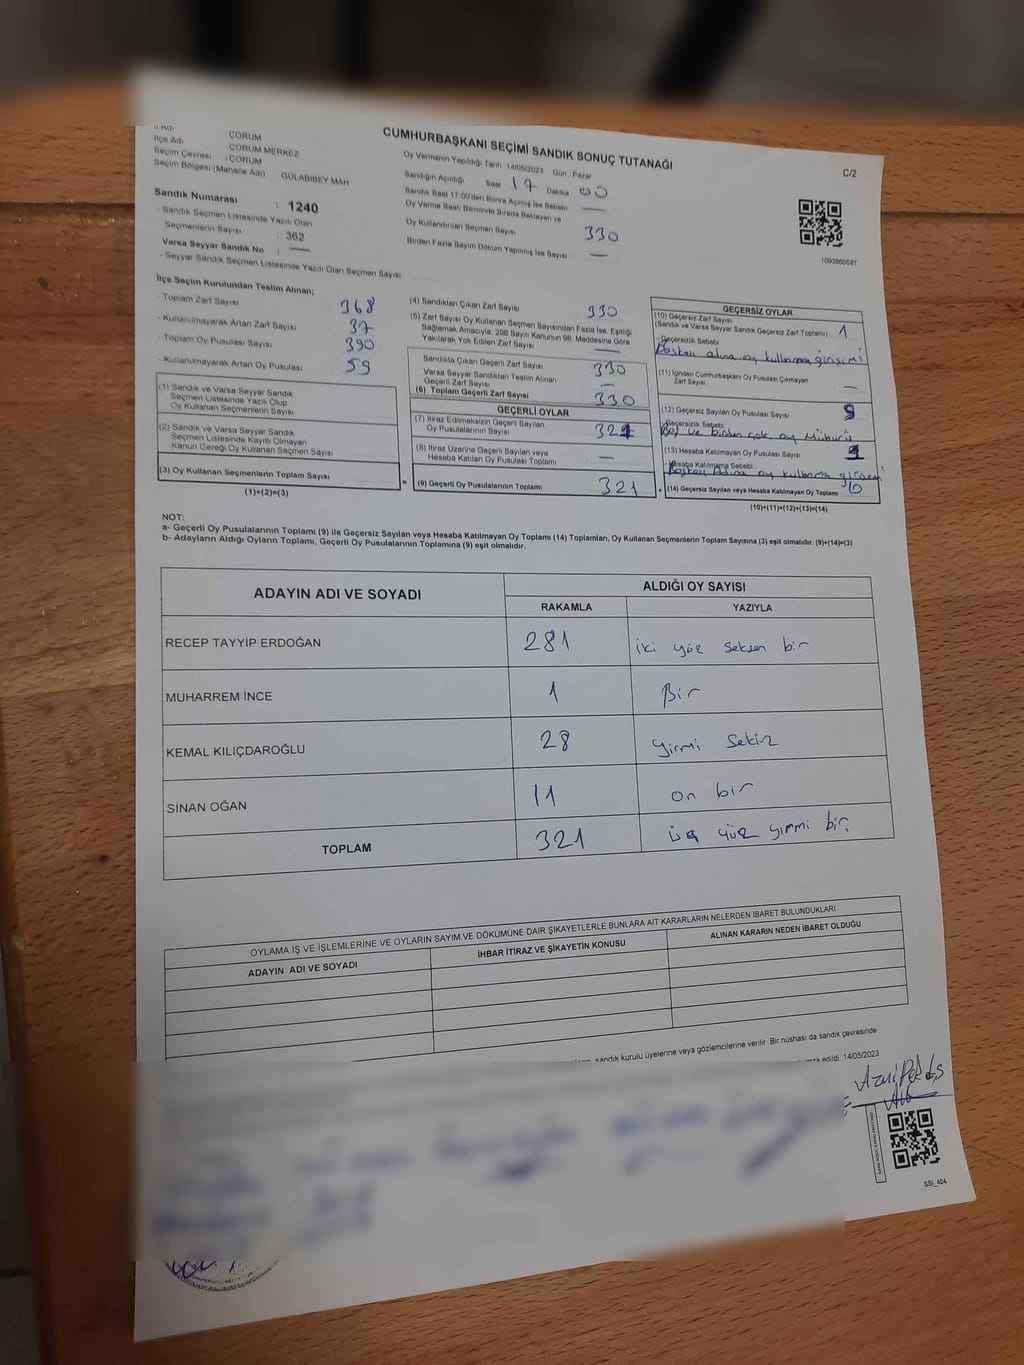 CUMHURBAŞKANI SEÇİMİ SANDIK SONUÇ TUTANAĞI
C/2
İl Adı ÇORUM
İlçe Adı ÇORUM MERKEZ
Seçim Çevresi : ÇORUM
Seçim Bölgesi (Mahalle Adı) GÜLABİBEY MAH
Oy Vermenin Yapıldığı Tarih : 14/05/2023 Gün : Pazar
Sandığın Açıldığı Saat 17 Dakika 00
Sandık Saat 17:00'dan Sonra Açılmış İse Sebebi —
Oy Verme Saati Bitiminde Sırada Bekleyen ve
Oy Kullandırılan Seçmen Sayısı 330
Birden Fazla Sayım Döküm Yapılmış İse Sayısı —
Sandık Numarası : 1240
- Sandık Seçmen Listesinde Yazılı Olan
Seçmenlerin Sayısı : 362
Varsa Seyyar Sandık No : —
- Seyyar Sandık Seçmen Listesinde Yazılı Olan Seçmen Sayısı
1093860587
İlçe Seçim Kurulundan Teslim Alınan;
- Toplam Zarf Sayısı 368
- Kullanılmayarak Artan Zarf Sayısı 37
- Toplam Oy Pusulası Sayısı 390
- Kullanılmayarak Artan Oy Pusulası 59
(1) Sandık ve Varsa Seyyar Sandık
Seçmen Listesinde Yazılı Olup
Oy Kullanan Seçmenlerin Sayısı
(2) Sandık ve Varsa Seyyar Sandık
Seçmen Listesinde Kayıtlı Olmayan
Kanun Gereği Oy Kullanan Seçmen Sayısı
(3) Oy Kullanan Seçmenlerin Toplam Sayısı
(1)+(2)=(3)
(4) Sandıktan Çıkan Zarf Sayısı 330
(5) Zarf Sayısı Oy Kullanan Seçmen Sayısından Fazla İse, Eşitliği
Sağlamak Amacıyla, 298 Sayılı Kanunun 98. Maddesine Göre
Yakılarak Yok Edilen Zarf Sayısı —
Sandıkta Çıkan Geçerli Zarf Sayısı 330
Varsa Seyyar Sandıktan Teslim Alınan
Geçerli Zarf Sayısı —
(6) Toplam Geçerli Zarf Sayısı 330
GEÇERLİ OYLAR
(7) İtiraz Edilmeksizin Geçerli Sayılan
Oy Pusulalarının Sayısı 321
(8) İtiraz Üzerine Geçerli Sayılan veya
Hesaba Katılan Oy Pusulası Toplamı —
= (9) Geçerli Oy Pusulalarının Toplamı 321
GEÇERSİZ OYLAR
(10) Geçersiz Zarf Sayısı
(Sandık ve Varsa Seyyar Sandık Geçersiz Zarf Toplamı) 1
Geçersizlik Sebebi
Başkası adına oy kullanma girişimi
(11) İçinden Cumhurbaşkanı Oy Pusulası Çıkmayan
Zarf Sayısı —
(12) Geçersiz Sayılan Oy Pusulası Sayısı 9
Geçersizlik Sebebi
Boş ve birden çok oy Mühürü
(13) Hesaba Katılmayan Oy Pusulası Sayısı
Hesaba Katılmama Sebebi
Başkası Adına oy kullanma girişimi
+ (14) Geçersiz Sayılan veya Hesaba Katılmayan Oy Toplamı 10
(10)+(11)+(12)+(13)=(14)
NOT:
a- Geçerli Oy Pusulalarının Toplamı (9) ile Geçersiz Sayılan veya Hesaba Katılmayan Oy Toplamı (14) Toplamları, Oy Kullanan Seçmenlerin Toplam Sayısına (3) eşit olmalıdır. (9)+(14)=(3)
b- Adayların Aldığı Oyların Toplamı, Geçerli Oy Pusulalarının Toplamına (9) eşit olmalıdır.
ADAYIN ADI VE SOYADI
ALDIĞI OY SAYISI
RAKAMLA YAZIYLA
RECEP TAYYİP ERDOĞAN 281 iki yüz seksen bir
MUHARREM İNCE 1 Bir
KEMAL KILIÇDAROĞLU 28 yirmi sekiz
SİNAN OĞAN 11 on bir
TOPLAM 321 üç yüz yirmi bir.
OYLAMA İŞ VE İŞLEMLERİNE VE OYLARIN SAYIM VE DÖKÜMÜNE DAİR ŞİKAYETLERLE BUNLARA AİT KARARLARIN NELERDEN İBARET BULUNDUKLARI
ADAYIN ADI VE SOYADI İHBAR İTİRAZ VE ŞİKAYETİN KONUSU ALINAN KARARIN NEDEN İBARET OLDUĞU
sandık kurulu üyelerine veya gözlemcilerine verilir. Bir nüshası da sandık çevresinde
edildi. 14/05/2023
SSİ_404